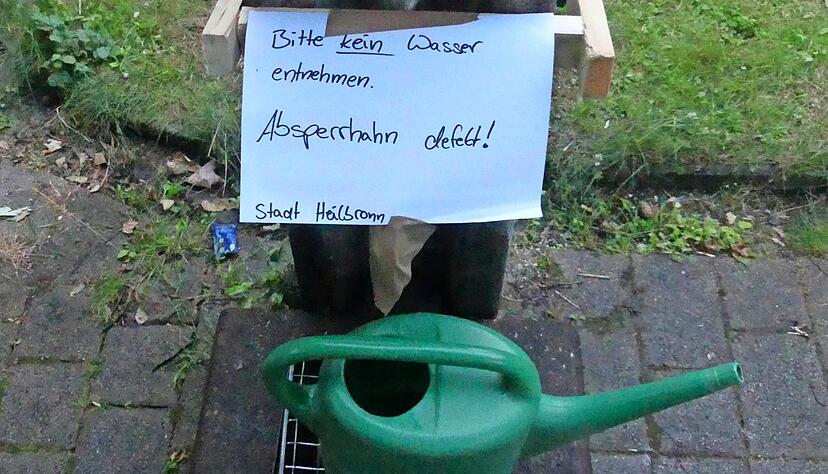 Bitte kein Wasser
entnehmen.
Absperrhahn defekt!
Stadt Heilbronn